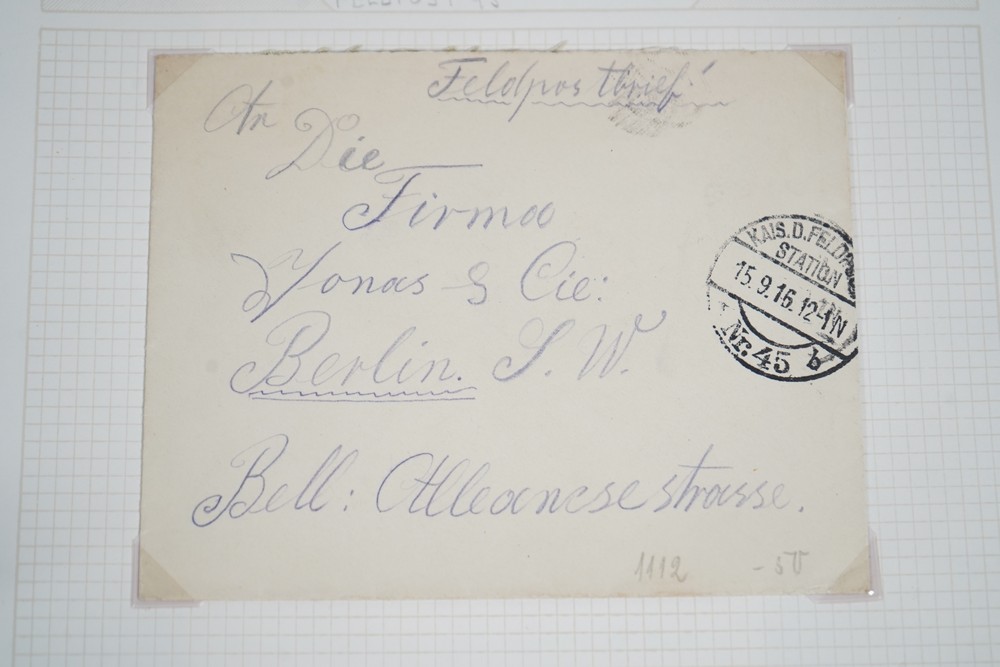 Feldpostbrief!
An
Die
Firma
Jonas & Cie:
Berlin. S. W.
Bell: Alleancsestrasse.
KAIS. D. FELDPOST
STATION
15.9.16. 12-1N
Nr. 45 b
1112 -50